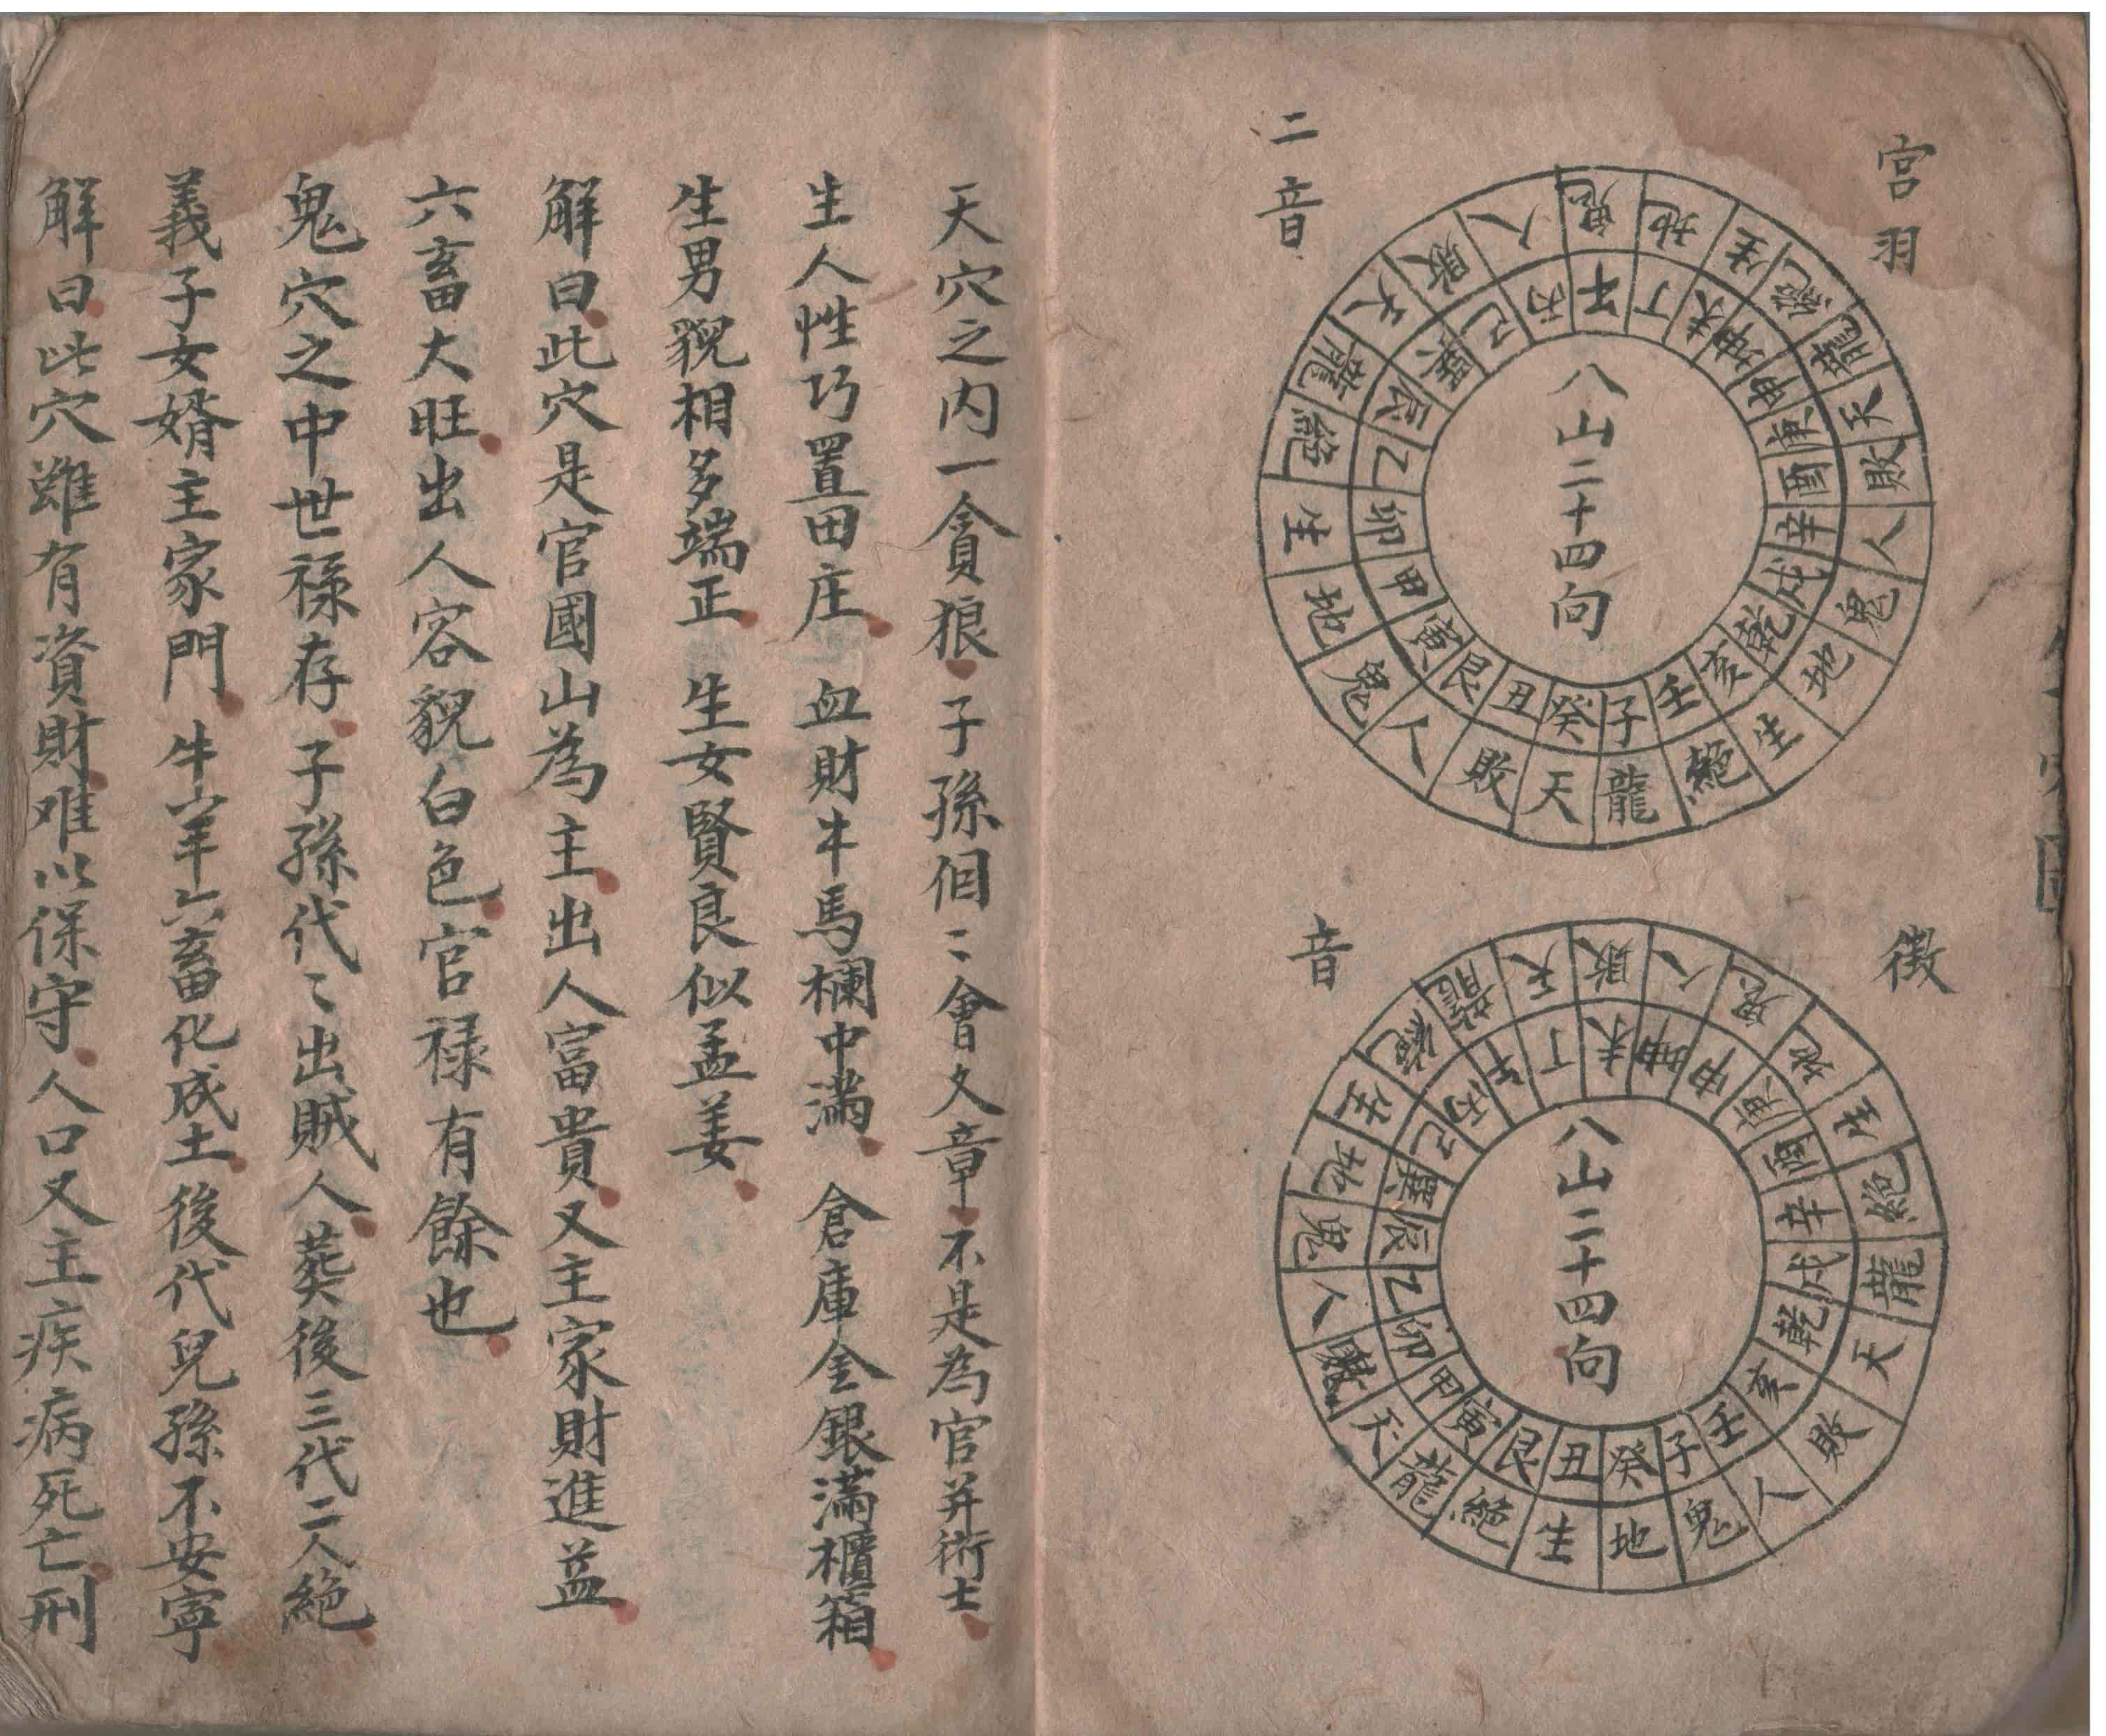 宮羽
二音
鬼地生絶龍天敗人鬼地生絶龍天敗人鬼地生絶龍天敗人
午丁未坤申庚酉辛戌乾亥壬子癸丑艮寅甲卯乙辰巽巳丙
八山二十四向
徵
音
敗人鬼地生絶龍天敗人鬼地生絶龍天敗人鬼地生絶龍天
未坤申庚酉辛戌乾亥壬子癸丑艮寅甲卯乙辰巽巳丙午丁
八山二十四向
天穴之内一貪狼子孫個〻會文章不是為官并術士
生人性巧置田庄血財牛馬欄中滿倉庫金銀滿櫃箱
生男貌相多端正生女賢良似孟姜
解曰此穴是官國山為主出人富貴又主家財進益
六畜大旺出人容貌白色官禄有餘也
鬼穴之中世禄存子孫代〻出賊人葬後三代二人絶
義子女婿主家門牛羊六畜化成土後代兒孫不安寧
解曰此穴雖有資財难以保守人口又主疾病死亡刑